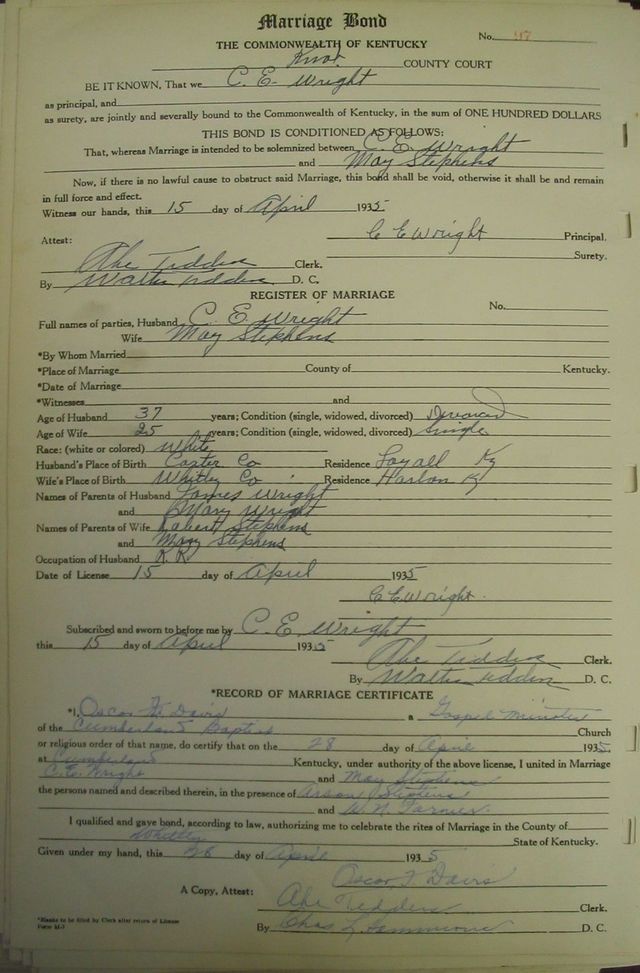 Marriage Bond
No. 97
THE COMMONWEALTH OF KENTUCKY
Knox COUNTY COURT
BE IT KNOWN, That we C. E. Wright
as principal, and
as surety, are jointly and severally bound to the Commonwealth of Kentucky, in the sum of ONE HUNDRED DOLLARS
THIS BOND IS CONDITIONED AS FOLLOWS:
That, whereas Marriage is intended to be solemnized between C. E. Wright
and May Stephens
Now, if there is no lawful cause to obstruct said Marriage, this bond shall be void, otherwise it shall be and remain
in full force and effect.
Witness our hands, this 15 day of April 1935
C E Wright Principal.
Attest:
Surety.
Abe Tedders Clerk.
By Walter Tedders D. C.
REGISTER OF MARRIAGE
No.
Full names of parties, Husband C. E. Wright
Wife May Stephens
*By Whom Married
*Place of Marriage County of Kentucky.
*Date of Marriage
*Witnesses and
Age of Husband 37 years; Condition (single, widowed, divorced) Divorced
Age of Wife 25 years; Condition (single, widowed, divorced) Single
Race: (white or colored) White
Husband's Place of Birth Carter Co Residence Loyall Ky
Wife's Place of Birth Whitley Co Residence Harlan Ky
Names of Parents of Husband James Wright
and Mary Wright
Names of Parents of Wife Stephens
and Mary Stephens
Occupation of Husband R. R.
Date of License 15 day of April 1935
C E Wright
Subscribed and sworn to before me by C. E. Wright
this 15 day of April 1935
Abe Tedders Clerk.
By Walter Tedders D. C.
*RECORD OF MARRIAGE CERTIFICATE
*I, Oscar F. Davis a Gospel Minister
of the Cumberland Baptist Church
or religious order of that name, do certify that on the 28 day of April 1935
at Cumberland Kentucky, under authority of the above license, I united in Marriage
C. E. Wright and May Stephens
the persons named and described therein, in the presence of Stephens
and W. N. Farmer.
I qualified and gave bond, according to law, authorizing me to celebrate the rites of Marriage in the County of
Whitley State of Kentucky.
Given under my hand, this 28 day of April 1935
Oscar F. Davis
A Copy, Attest:
Abe Tedders Clerk.
By Chas L. D. C.
*Blanks to be filled by Clerk after return of License